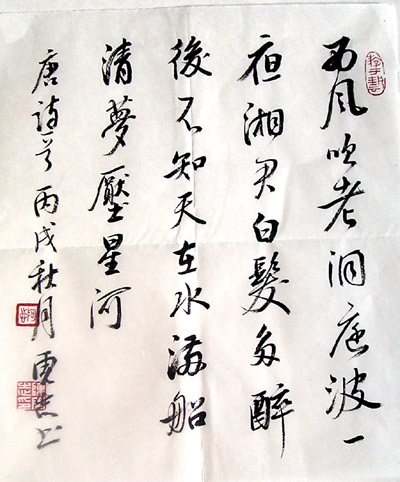 西风吹老洞庭波一
夜湘君白髮多醉
後不知天在水满船
清夢壓星河
唐詩一首丙戌秋月